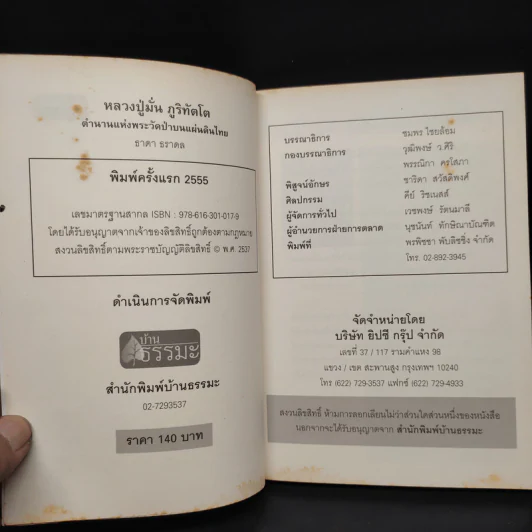 หลวงปู่มั่น ภูริทัตโต
ตำนานแห่งพระวัดป่าบนแผ่นดินไทย
ธาดา ธราดล
พิมพ์ครั้งแรก 2555
เลขมาตรฐานสากล ISBN : 978-616-301-017-9
โดยได้รับอนุญาตจากเจ้าของลิขสิทธิ์ถูกต้องตามกฎหมาย
สงวนลิขสิทธิ์ตามพระราชบัญญัติลิขสิทธิ์ © พ.ศ. 2537
ดำเนินการจัดพิมพ์
บ้าน
ธรรมะ
สำนักพิมพ์บ้านธรรมะ
02-7293537
ราคา 140 บาท
บรรณาธิการ ชมพร ไชยล้อม
กองบรรณาธิการ วุฒิพงษ์ ว.ศิริ
พรรณิกา ครุโสภา
พิสูจน์อักษร ชาริดา สวัสดิพงศ์
ศิลปกรรม คีย์ ริชเนสส์
ผู้จัดการทั่วไป เวชพงษ์ รัตนมาลี
ผู้อำนวยการฝ่ายการตลาด นุชนันท์ ทักษิณาบัณฑิต
พิมพ์ที่ พรพิชชา พับลิชชิ่ง จำกัด
โทร. 02-892-3945
จัดจำหน่ายโดย
บริษัท ยิปซี กรุ๊ป จำกัด
เลขที่ 37 / 117 รามคำแหง 98
แขวง / เขต สะพานสูง กรุงเทพฯ 10240
โทร (622) 729-3537 แฟกซ์ (622) 729-4933
สงวนลิขสิทธิ์ ห้ามการลอกเลียนไม่ว่าส่วนใดส่วนหนึ่งของหนังสือ
นอกจากจะได้รับอนุญาตจาก สำนักพิมพ์บ้านธรรมะ